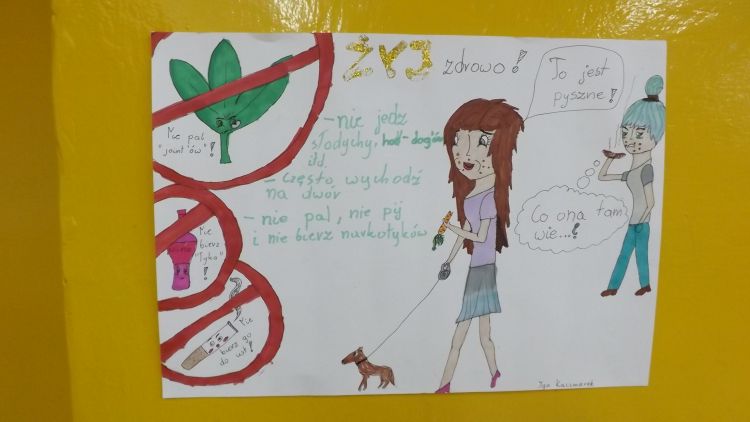 ŻYJ zdrowo!
To jest
pyszne!
Nie pal
"joint'ów"!
- nie jedz
słodychy, hot-dogów
itd.
- często wychodź
na dwór
- nie pal, nie pij
i nie bierz narkotyków
Co ona tam
wie...?
Nie
bierz
"łyka"
!
Nie
bierz go
do ust!
Iga Kaczmarek